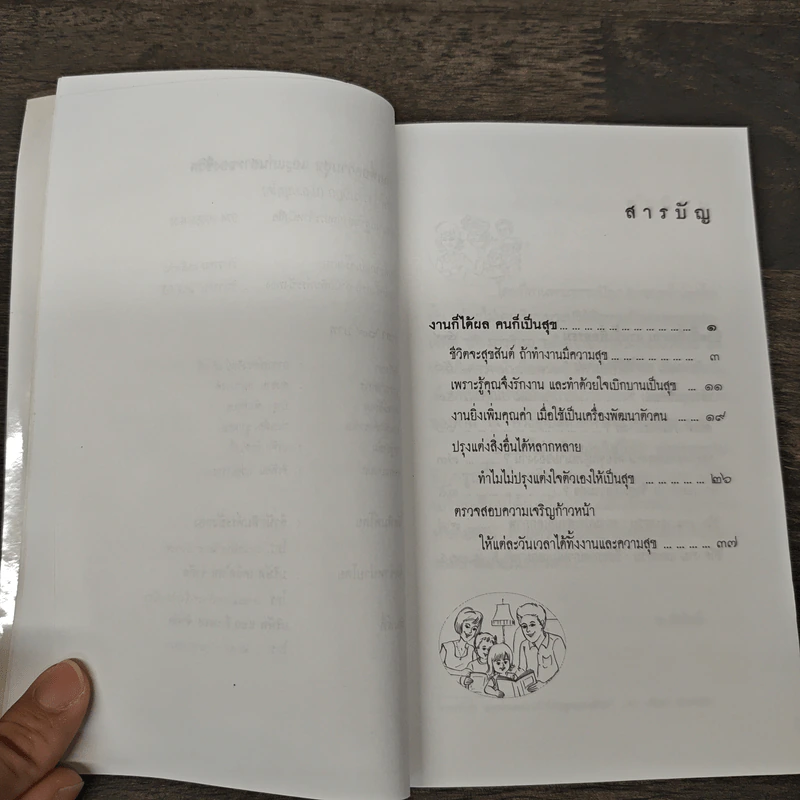 สารบัญ
งานก็ได้ผล คนก็เป็นสุข ... ... ... ... ... ... ... ... ... ๑
ชีวิตจะสุขสันต์ ถ้าทำงานมีความสุข ... ... ... ... ... ... ๓
เพราะรู้คุณจึงรักงาน และทำด้วยใจเบิกบานเป็นสุข ... ๑๑
งานยิ่งเพิ่มคุณค่า เมื่อใช้เป็นเครื่องพัฒนาตัวคน ... ... ๑๙
ปรุงแต่งสิ่งอื่นได้หลากหลาย
ทำไมไม่ปรุงแต่งใจตัวเองให้เป็นสุข ... ... ... ... ๒๖
ตรวจสอบความเจริญก้าวหน้า
ให้แต่ละวันเวลาได้ทั้งงานและความสุข ... ... ... ๓๗